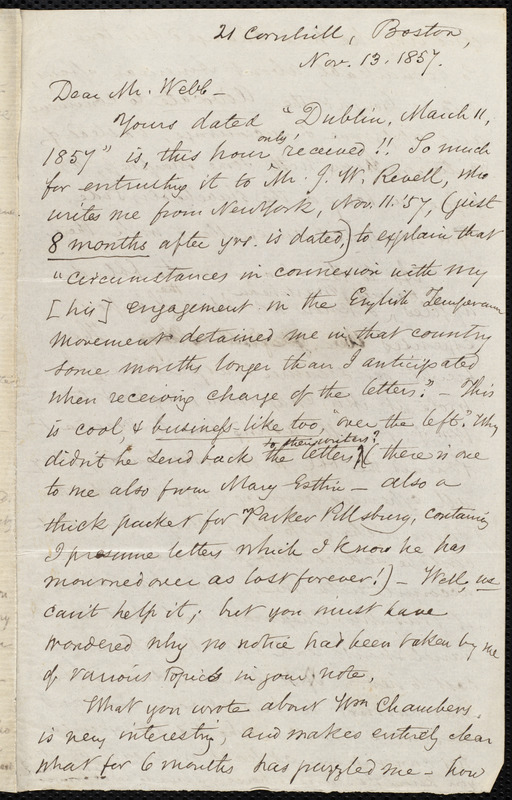 21 Cornhill, Boston,
Nov. 13. 1857.
Dear Mr. Webb -
Yours dated "Dublin, March 11,
1857" is, this hour only received!! So much
for entrusting it to Mr. J. W. Revell, who
writes me from New York, Nov. 11. '57, (just
8 months after yrs. is dated,) to explain that
"circumstances in connexion with my
[his] engagement in the English Temperance
movement detained me in that country
some months longer than I anticipated
when receiving charge of the letters." - This
is cool, & business-like too, "over the left." Why
didn't he send back the letters, to their writers? (there is one
to me also from Mary Estlin - also a
thick packet for Parker Pillsbury, containing
I presume letters which I know he has
mourned over as lost forever!) - Well, we
can't help it; but you must have
wondered why no notice had been taken by me
of various topics in your note.
What you wrote about Wm Chambers
is very interesting, and makes entirely clear
what for 6 months has puzzled me - how